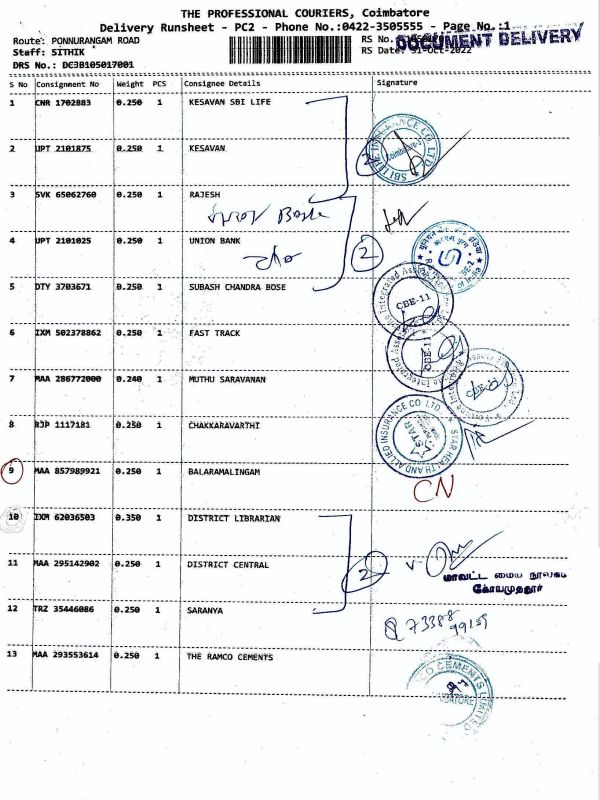 THE PROFESSIONAL COURIERS, Coimbatore
Delivery Runsheet - PC2 - Phone No.:0422-3505555 - Page No.:1
Route: PONNURANGAM ROAD RS No.
DOCUMENT DELIVERY
Staff: SITHIK RS Date: 31-Oct-2022
DRS No.: DC3B105017001
S No Consignment No Weight PCS Consignee Details Signature
1 CNR 1702883 0.250 1 KESAVAN SBI LIFE
2 UPT 2101875 0.250 1 KESAVAN
3 SVK 65062760 0.250 1 RAJESH
Bose
4 UPT 2101025 0.250 1 UNION BANK
2
5 DTY 3703671 0.250 1 SUBASH CHANDRA BOSE
CBE-11
6 IXM 502378862 0.250 1 FAST TRACK
CBE-11
7 MAA 286772000 0.240 1 MUTHU SARAVANAN
8 RJP 1117181 0.250 1 CHAKKARAVARTHI
STAR HEALTH AND ALLIED INSURANCE CO LTD
STAR
9 MAA 857989921 0.250 1 BALARAMALINGAM
CN
10 IXM 62036503 0.350 1 DISTRICT LIBRARIAN
11 MAA 295142902 0.250 1 DISTRICT CENTRAL
2
மாவட்ட மைய நூலகம்
கோயமுத்தூர்
12 TRZ 35446086 0.250 1 SARANYA
73388
99159
13 MAA 293553614 0.250 1 THE RAMCO CEMENTS
CEMENTS LIMITED